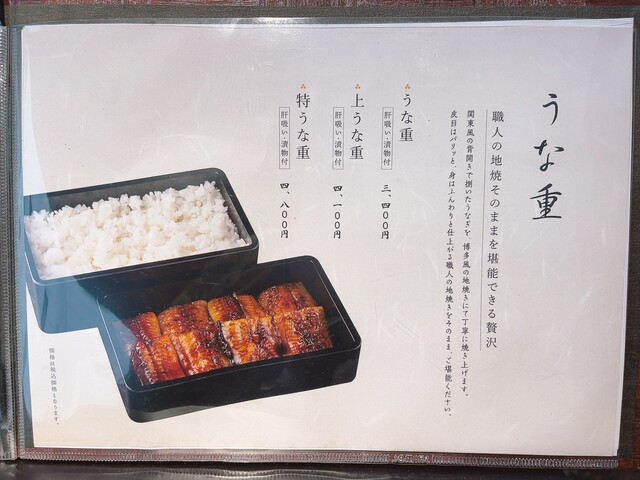 うな重
職人の地焼そのままを堪能できる贅沢
関東風の背開きで捌いたうなぎを、博多風の地焼きにて丁寧に焼き上げます。
皮目はパリッと、身はふんわりと仕上がる職人の地焼きをそのまま、ご堪能ください。
うな重
肝吸い・漬物付
三、四〇〇円
上うな重
肝吸い・漬物付
四、一〇〇円
特うな重
肝吸い・漬物付
四、八〇〇円
価格は税込価格となります。